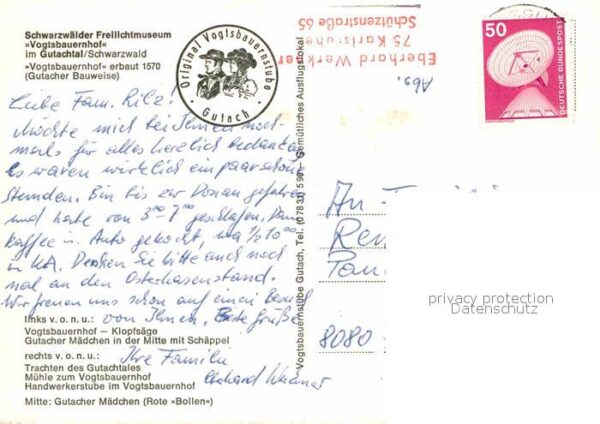 Schwarzwälder Freilichtmuseum
»Vogtsbauernhof«
im Gutachtal/Schwarzwald
»Vogtsbauernhof« erbaut 1570
(Gutacher Bauweise)
Original Vogtsbauernstube
· Gutach ·
Liebe Fam. Rilz!
Möchte mich bei Ihnen noch
mals für alles herzlich bedanken
Es waren wirklich ein paar schöne
Stunden. Bin bis zur Donau gefahren
und habe von 3⁰⁰-7⁰⁰ geschlafen. Dann
Kaffee im Auto gekocht, ½10⁰⁰
in KA. Denken Sie bitte auch noch
mal an den Osterhasenstand.
Wir freuen uns schon auf einen Besuch
von Ihnen. Beste Grüße
Ihre Familie
Eberhard
links v. o. n. u.:
Vogtsbauernhof – Klopfsäge
Gutacher Mädchen in der Mitte mit Schäppel
rechts v. o. n. u.:
Trachten des Gutachtales
Mühle zum Vogtsbauernhof
Handwerkerstube im Vogtsbauernhof
Mitte: Gutacher Mädchen (Rote »Bollen«)
Vogtsbauernstube Gutach, Tel. (07831) 590 – Gemütliches Ausflugslokal
Abs.
Eberhard
75 Karlsruhe
Schützenstraße 65
50
DEUTSCHE BUNDESPOST
An
8080
privacy protection
Datenschutz